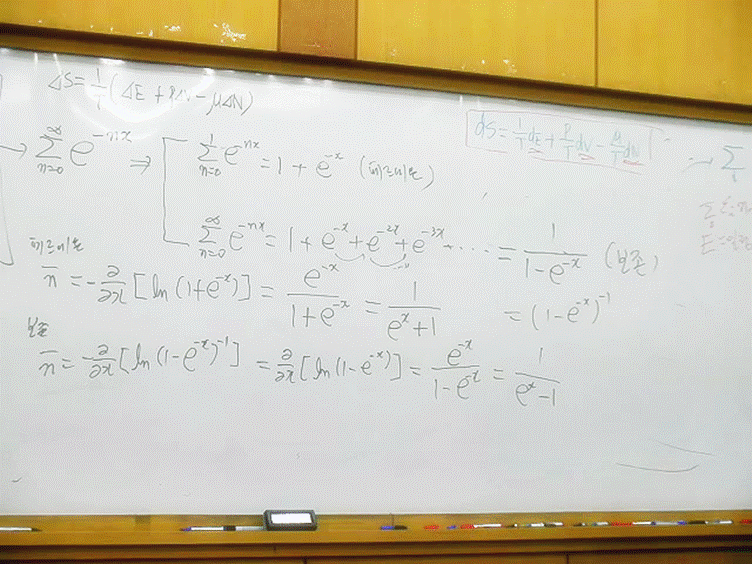 ΔS = 1/T (ΔE + PΔV − μΔN)
dS = 1/T dE + P/T dV − μ/T dN
→ ∑_{n=0}^{∞} e^{-nx} ⇒ ∑_{n=0}^{1} e^{-nx} = 1 + e^{-x} (페르미온)
∑_{n=0}^{∞} e^{-nx} = 1 + e^{-x} + e^{-2x} + e^{-3x} + ⋯ = 1/(1 − e^{-x}) (보존)
= (1 − e^{-x})^{-1}
페르미온
n̄ = −∂/∂x [ln(1+e^{-x})] = e^{-x}/(1+e^{-x}) = 1/(e^{x}+1)
보존
n̄ = −∂/∂x [ln(1−e^{-x})^{-1}] = ∂/∂x [ln(1−e^{-x})] = e^{-x}/(1−e^{-x}) = 1/(e^{x}−1)